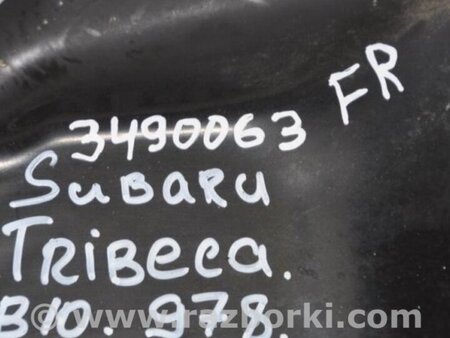 FR
3490063
SUBARU
TRIBECA.
B10. 978.
© www.razborki.com